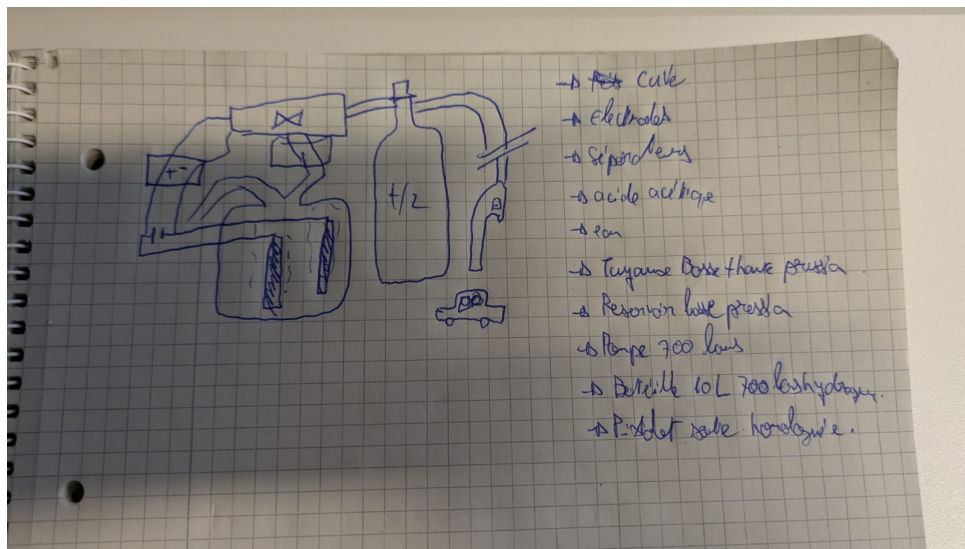 + -
H2
→ Cuve
→ Electrodes
→ Séparateurs
→ acide acétique
→ eau
→ Tuyaux Basse + haute pression
→ Reservoir basse pression
→ Pompe 700 bars
→ Bouteille 10 L 700 bars hydrogène.
→ Pistolet homologuée.